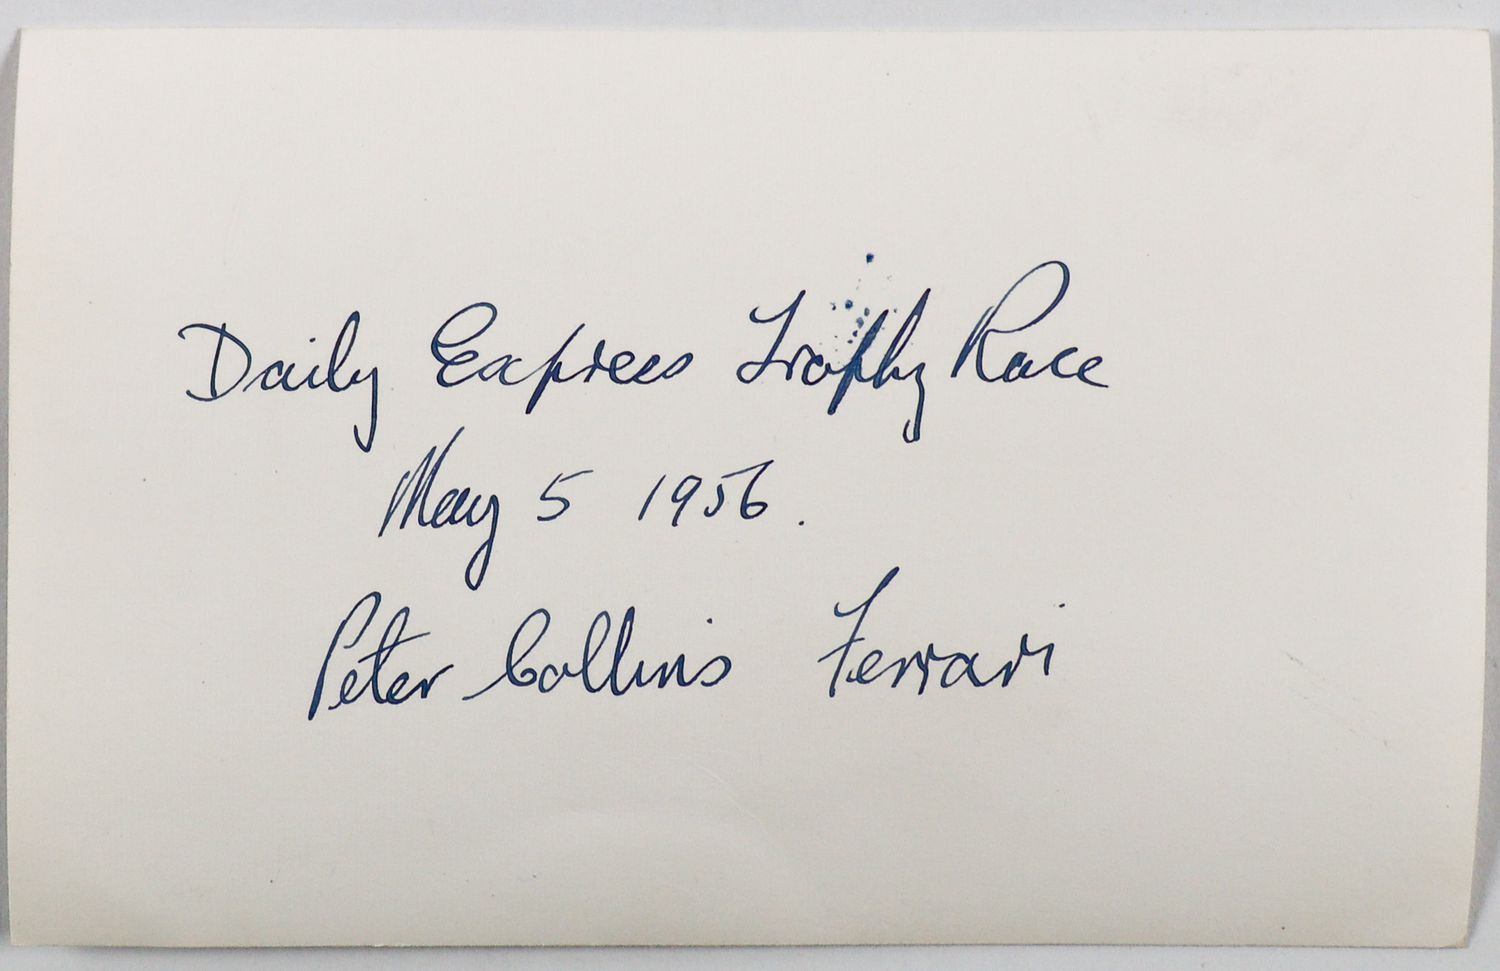 Daily Express Trophy Race
May 5 1956.
Peter Collins Ferrari